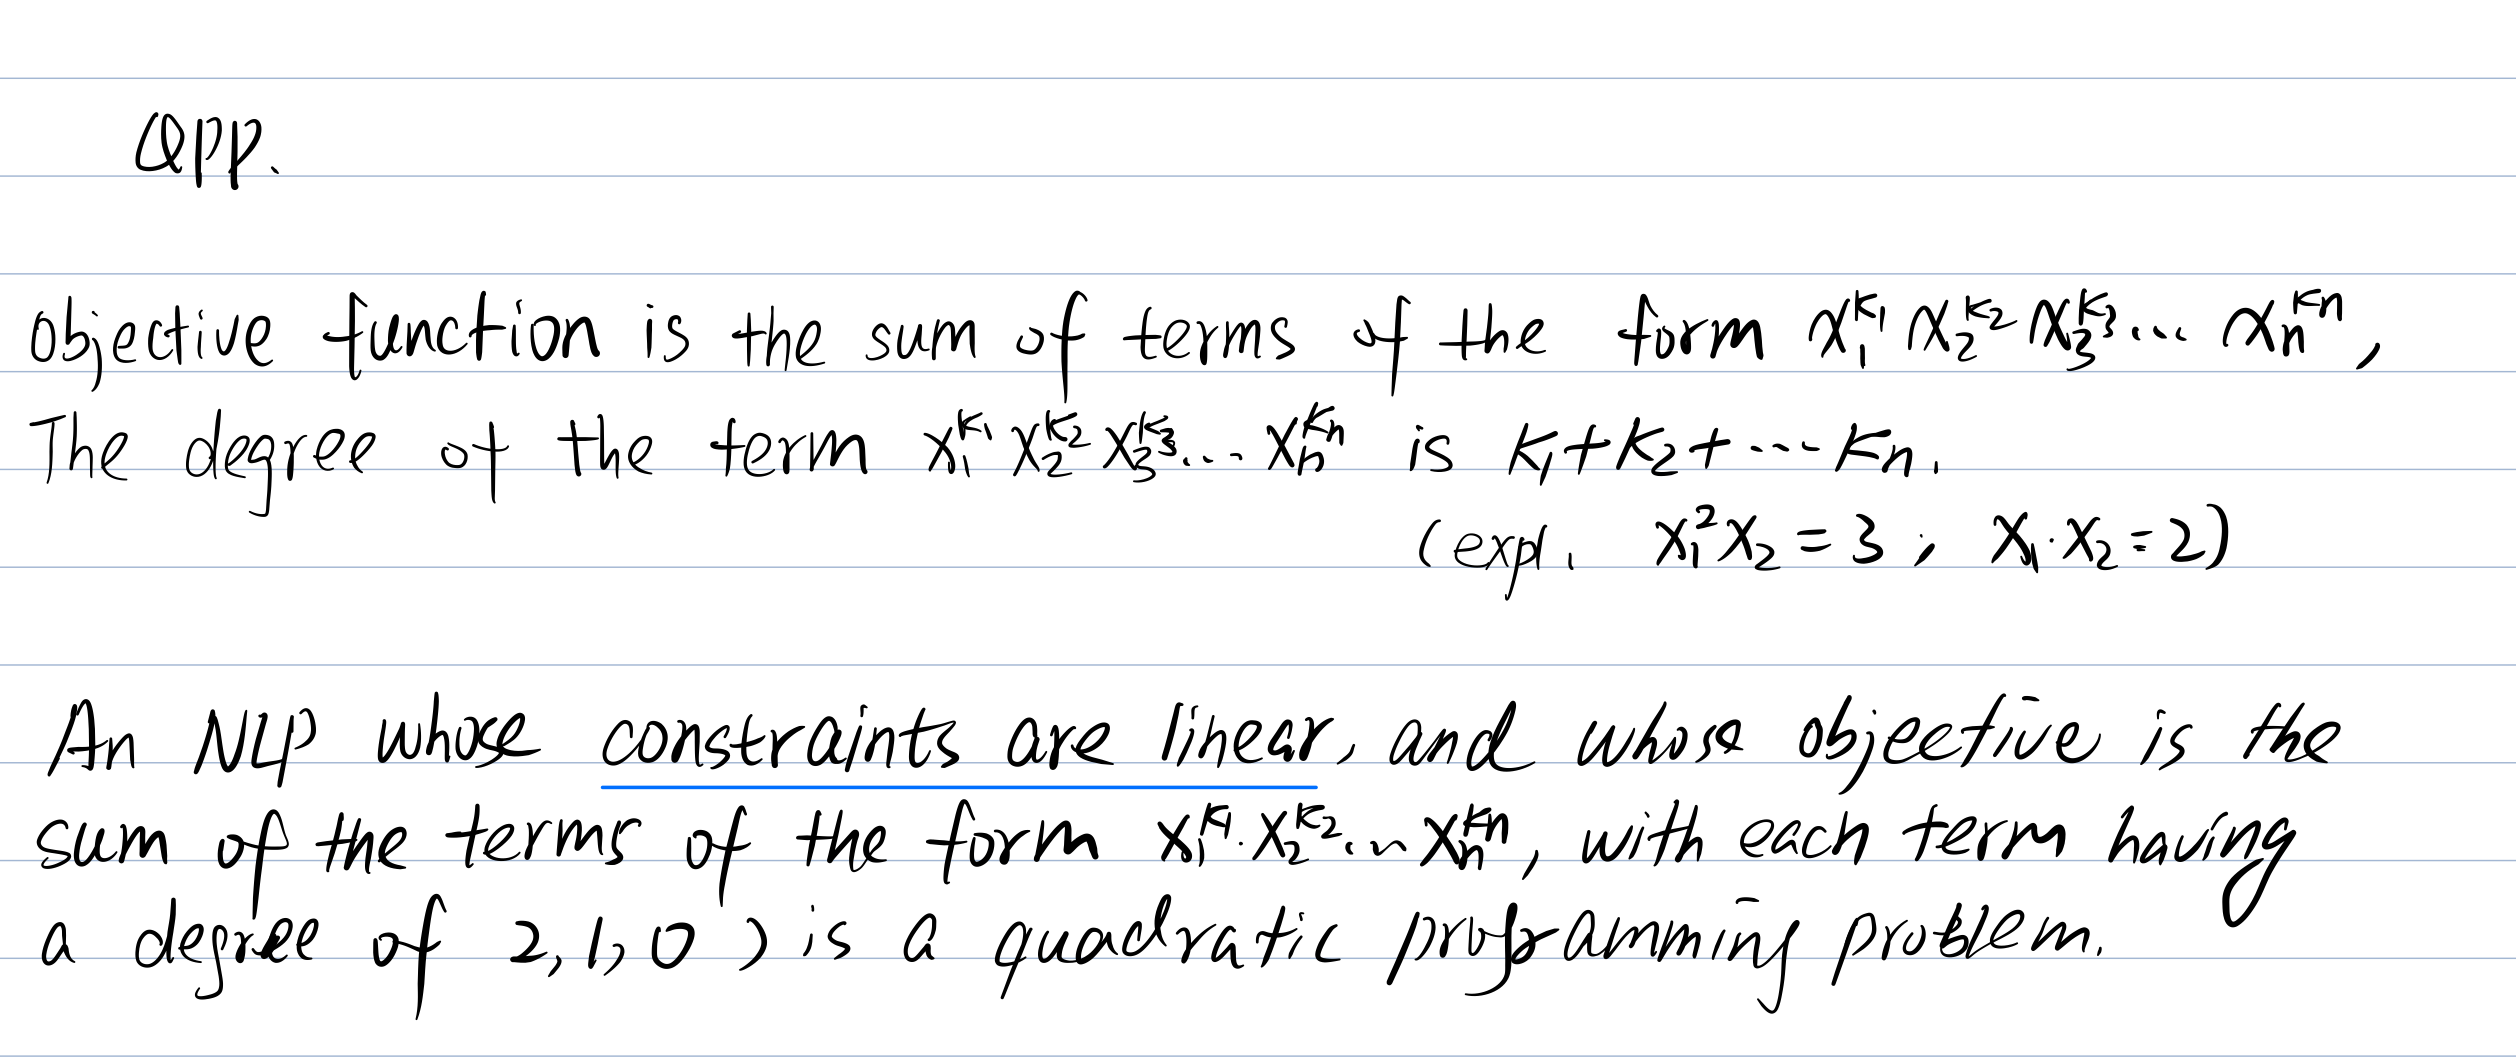 QPP.
objective function is the sum of terms of the form x₁^k₁ x₂^k₂ x₃^k₃ ... xn^kn,
The degree of the term x₁^k₁ x₂^k₂ x₃^k₃ ... xn^kn is k₁+k₂+...kn.
(exp. x₁²x₂=3; x₁·x₂=2)
An NLP whose constraints are linear, and whose objective is the
sum of the terms of the form x₁^k₁·x₂^k₂...xn^kn, with each term having
a degree of 2, 1, 0, is a quadratic programming problem.